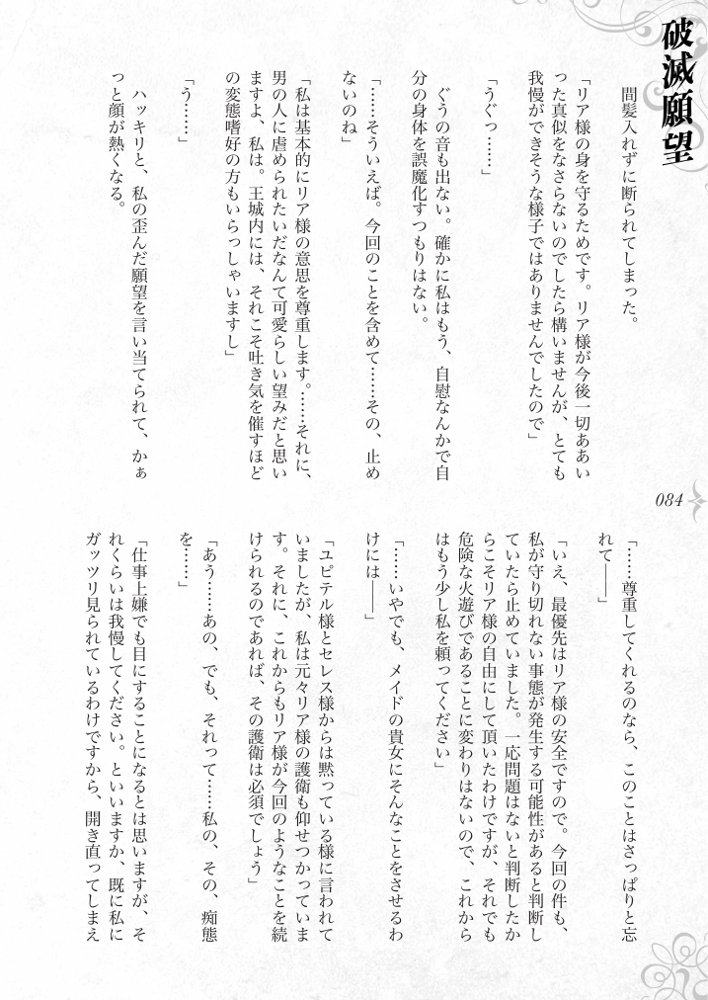 破滅願望
　間髪入れずに断られてしまった。
「リア様の身を守るためです。リア様が今後一切ああい
った真似をなさらないのでしたら構いませんが、とても
我慢ができそうな様子ではありませんでしたので」
「うぐっ……」
　ぐうの音も出ない。確かに私はもう、自慰なんかで自
分の身体を誤魔化すつもりはない。
「……そういえば。今回のことを含めて……その、止め
ないのね」
「私は基本的にリア様の意思を尊重します。……それに、
男の人に虐められたいだなんて可愛らしい望みだと思い
ますよ、私は。王城内には、それこそ吐き気を催すほど
の変態嗜好の方もいらっしゃいますし」
「う……」
　ハッキリと、私の歪んだ願望を言い当てられて、かぁ
っと顔が熱くなる。
「……尊重してくれるのなら、このことはさっぱりと忘
れて――」
「いえ、最優先はリア様の安全ですので。今回の件も、
私が守り切れない事態が発生する可能性があると判断し
ていたら止めていました。一応問題はないと判断したか
らこそリア様の自由にして頂いたわけですが、それでも
危険な火遊びであることに変わりはないので、これから
はもう少し私を頼ってください」
「……いやでも、メイドの貴女にそんなことをさせるわ
けには――」
「ユピテル様とセレス様からは黙っている様に言われて
いましたが、私は元々リア様の護衛も仰せつかっていま
す。それに、これからもリア様が今回のようなことを続
けられるのであれば、その護衛は必須でしょう」
「あう……あの、でも、それって……私の、その、痴態
を……」
「仕事上嫌でも目にすることになるとは思いますが、そ
れくらいは我慢してください。といいますか、既に私に
ガッツリ見られているわけですから、開き直ってしまえ
084